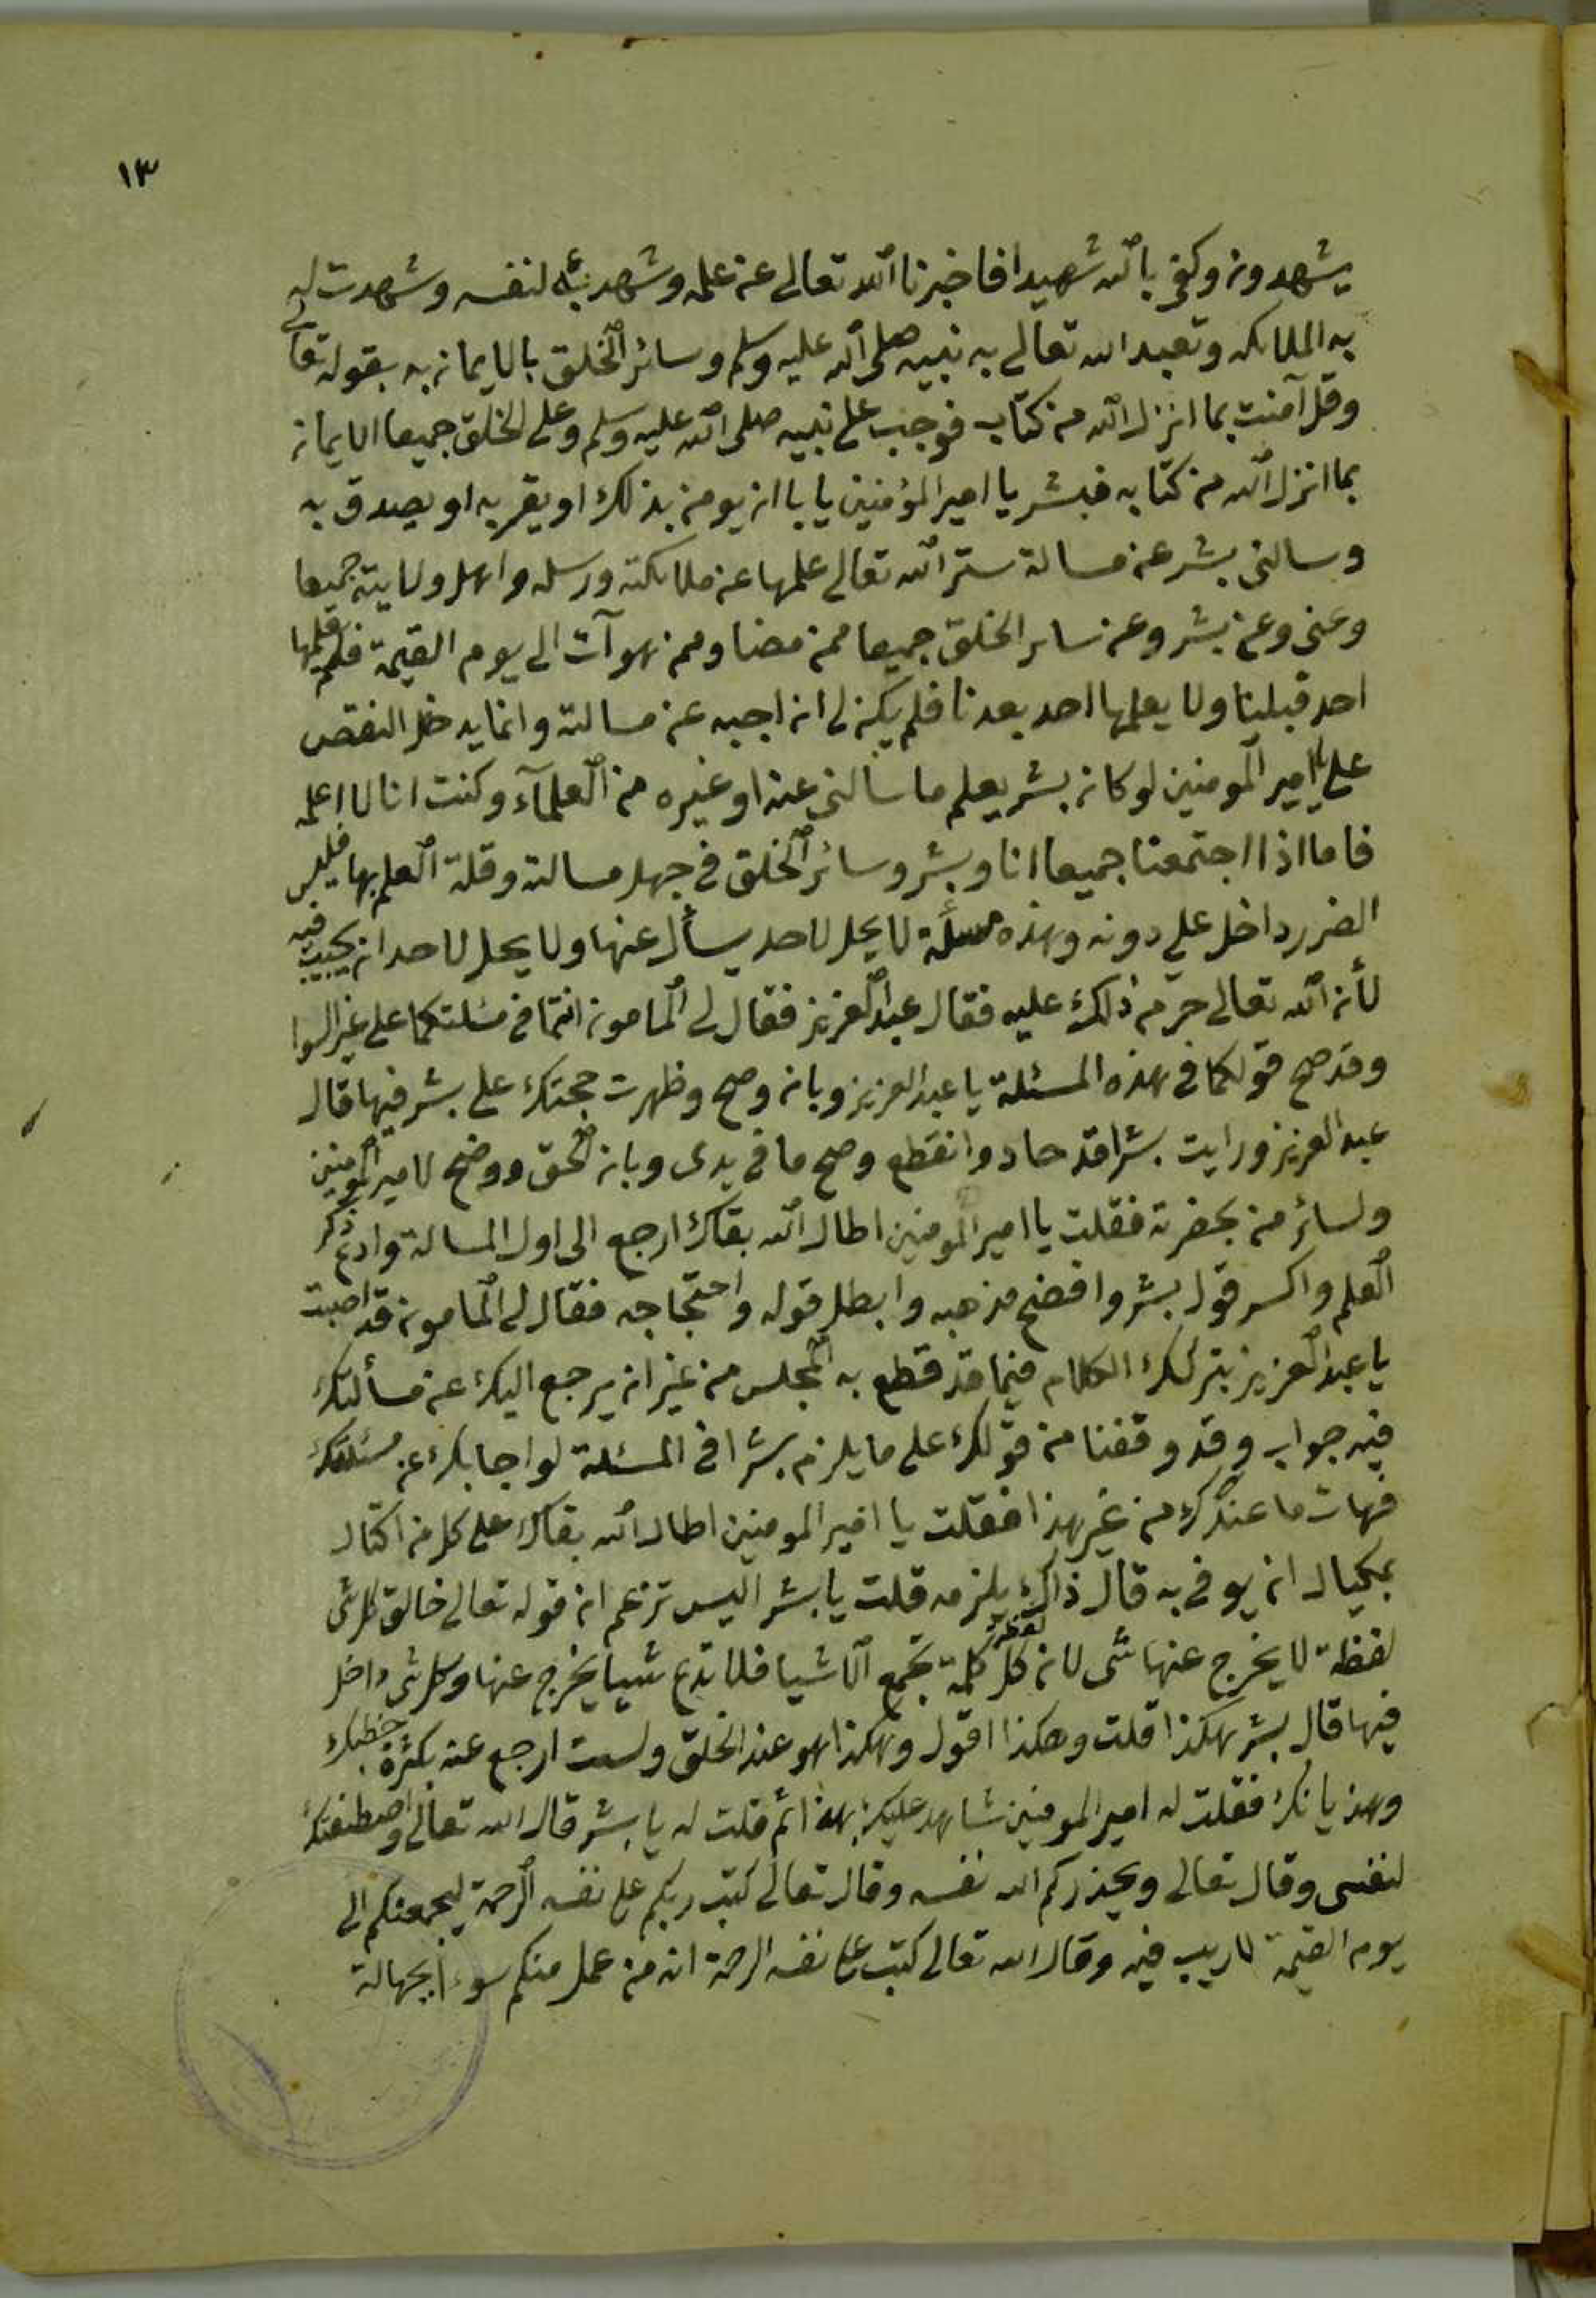 ١٣
يشهدون وكفى بالله شهيدا فاخبرنا الله تعالى عن علمه وشهد به لنفسه وشهدت له
به الملائكه وتعبد الله تعالى به نبيه صلى الله عليه وسلم وسائر الخلق بالايمان به بقوله تعالى
وقل آمنت بما انزل الله من كتاب فوجب على نبيه صلى الله عليه وسلم وعلى الخلق جميعا الايمان
بما انزل الله من كتابه فبشر يا امير المؤمنين يابا ان يومن بذلك او يقر به او يصدق به
وسالنى بشر عن مسالة ستر الله تعالى علمها عن ملائكته ورسله واهل ولايته جميعا
وعنى وعن بشر وعن سائر الخلق جميعا ممن مضا وممن هو آت الى يوم القيمة فلم يعلمها
احد قبلينا ولا يعلمها احد بعدنا فلم يكن لى ان اجيبه عن مسالته وانما يدخل النقص
على يا امير المومنين لو كان بشر يعلم ما سألنى عنه او غيره من العلمآء وكنت انا لا اعلمه
فاما اذا اجتمعنا جميعا انا وبشر وسائر الخلق فى جهل مسالته وقلة العلم بها فليس
الضرر داخل على دونه وهذه مسئلة لا يحل لاحد يسأل عنها ولا يحل لاحد ان يجيب فيه
لأن الله تعالى حرم ذلك عليه فقال عبد العزيز فقال لى المامون انتما فى مسئلتكما على غير السوا
وقد صح قولكما فى هذه المسئلة يا عبد العزيز وبان وصح وظهرت حجتك على بشر فيها قال
عبد العزيز ورايت بشرا قد حاد وانقطع وصح ما فى يدى وبان الحق ووضح لامير المومنين
ولسائر من بحضرته فقلت يا امير المومنين اطال الله بقاك ارجع الى اول المسالة وادع ذكر
العلم واكسر قول بشر وافضح مذهبه وابطل قوله واحتجاجه فقال لى المامون قد اصبت
يا عبد العزيز بتركك الكلام فيما قد قطع به المجلس من غير ان يرجع اليك عن مسألتك
فيه جواب وقد وقفنا من قولك على ما يلزم بشرا فى المسئلة لو اجابك عن مسئلتك
فهات ما عندك من غير هذا فقلت يا امير المومنين اطال الله بقاك على كل من اكتال
بمكيال ان يوفى به قال ذاك يلزمه قلت يا بشر اليس تزعم ان قوله تعالى خالق كل شى
لفظة لا يخرج عنها شى لان كل لفظة كلمة تجمع الاشيا فلا تدع شيا يخرج عنها وكل شى داخل
فيها قال بشر هكذا قلت وهكذا اقول وهكذا هو عند الخلق ولست ارجع عنه بكثرة خطبك
وهذيانك فقلت له امير المومنين شاهد عليك بهذا ثم قلت له يا بشر قال الله تعالى واصطنعتك
لنفسى وقال تعالى ويحذركم الله نفسه وقال تعالى كتب ربكم على نفسه الرحمة ليجمعنكم الى
يوم القيمة لا ريب فيه وقال الله تعالى كتب على نفسه الرحمة انه من عمل منكم سوءا بجهالة